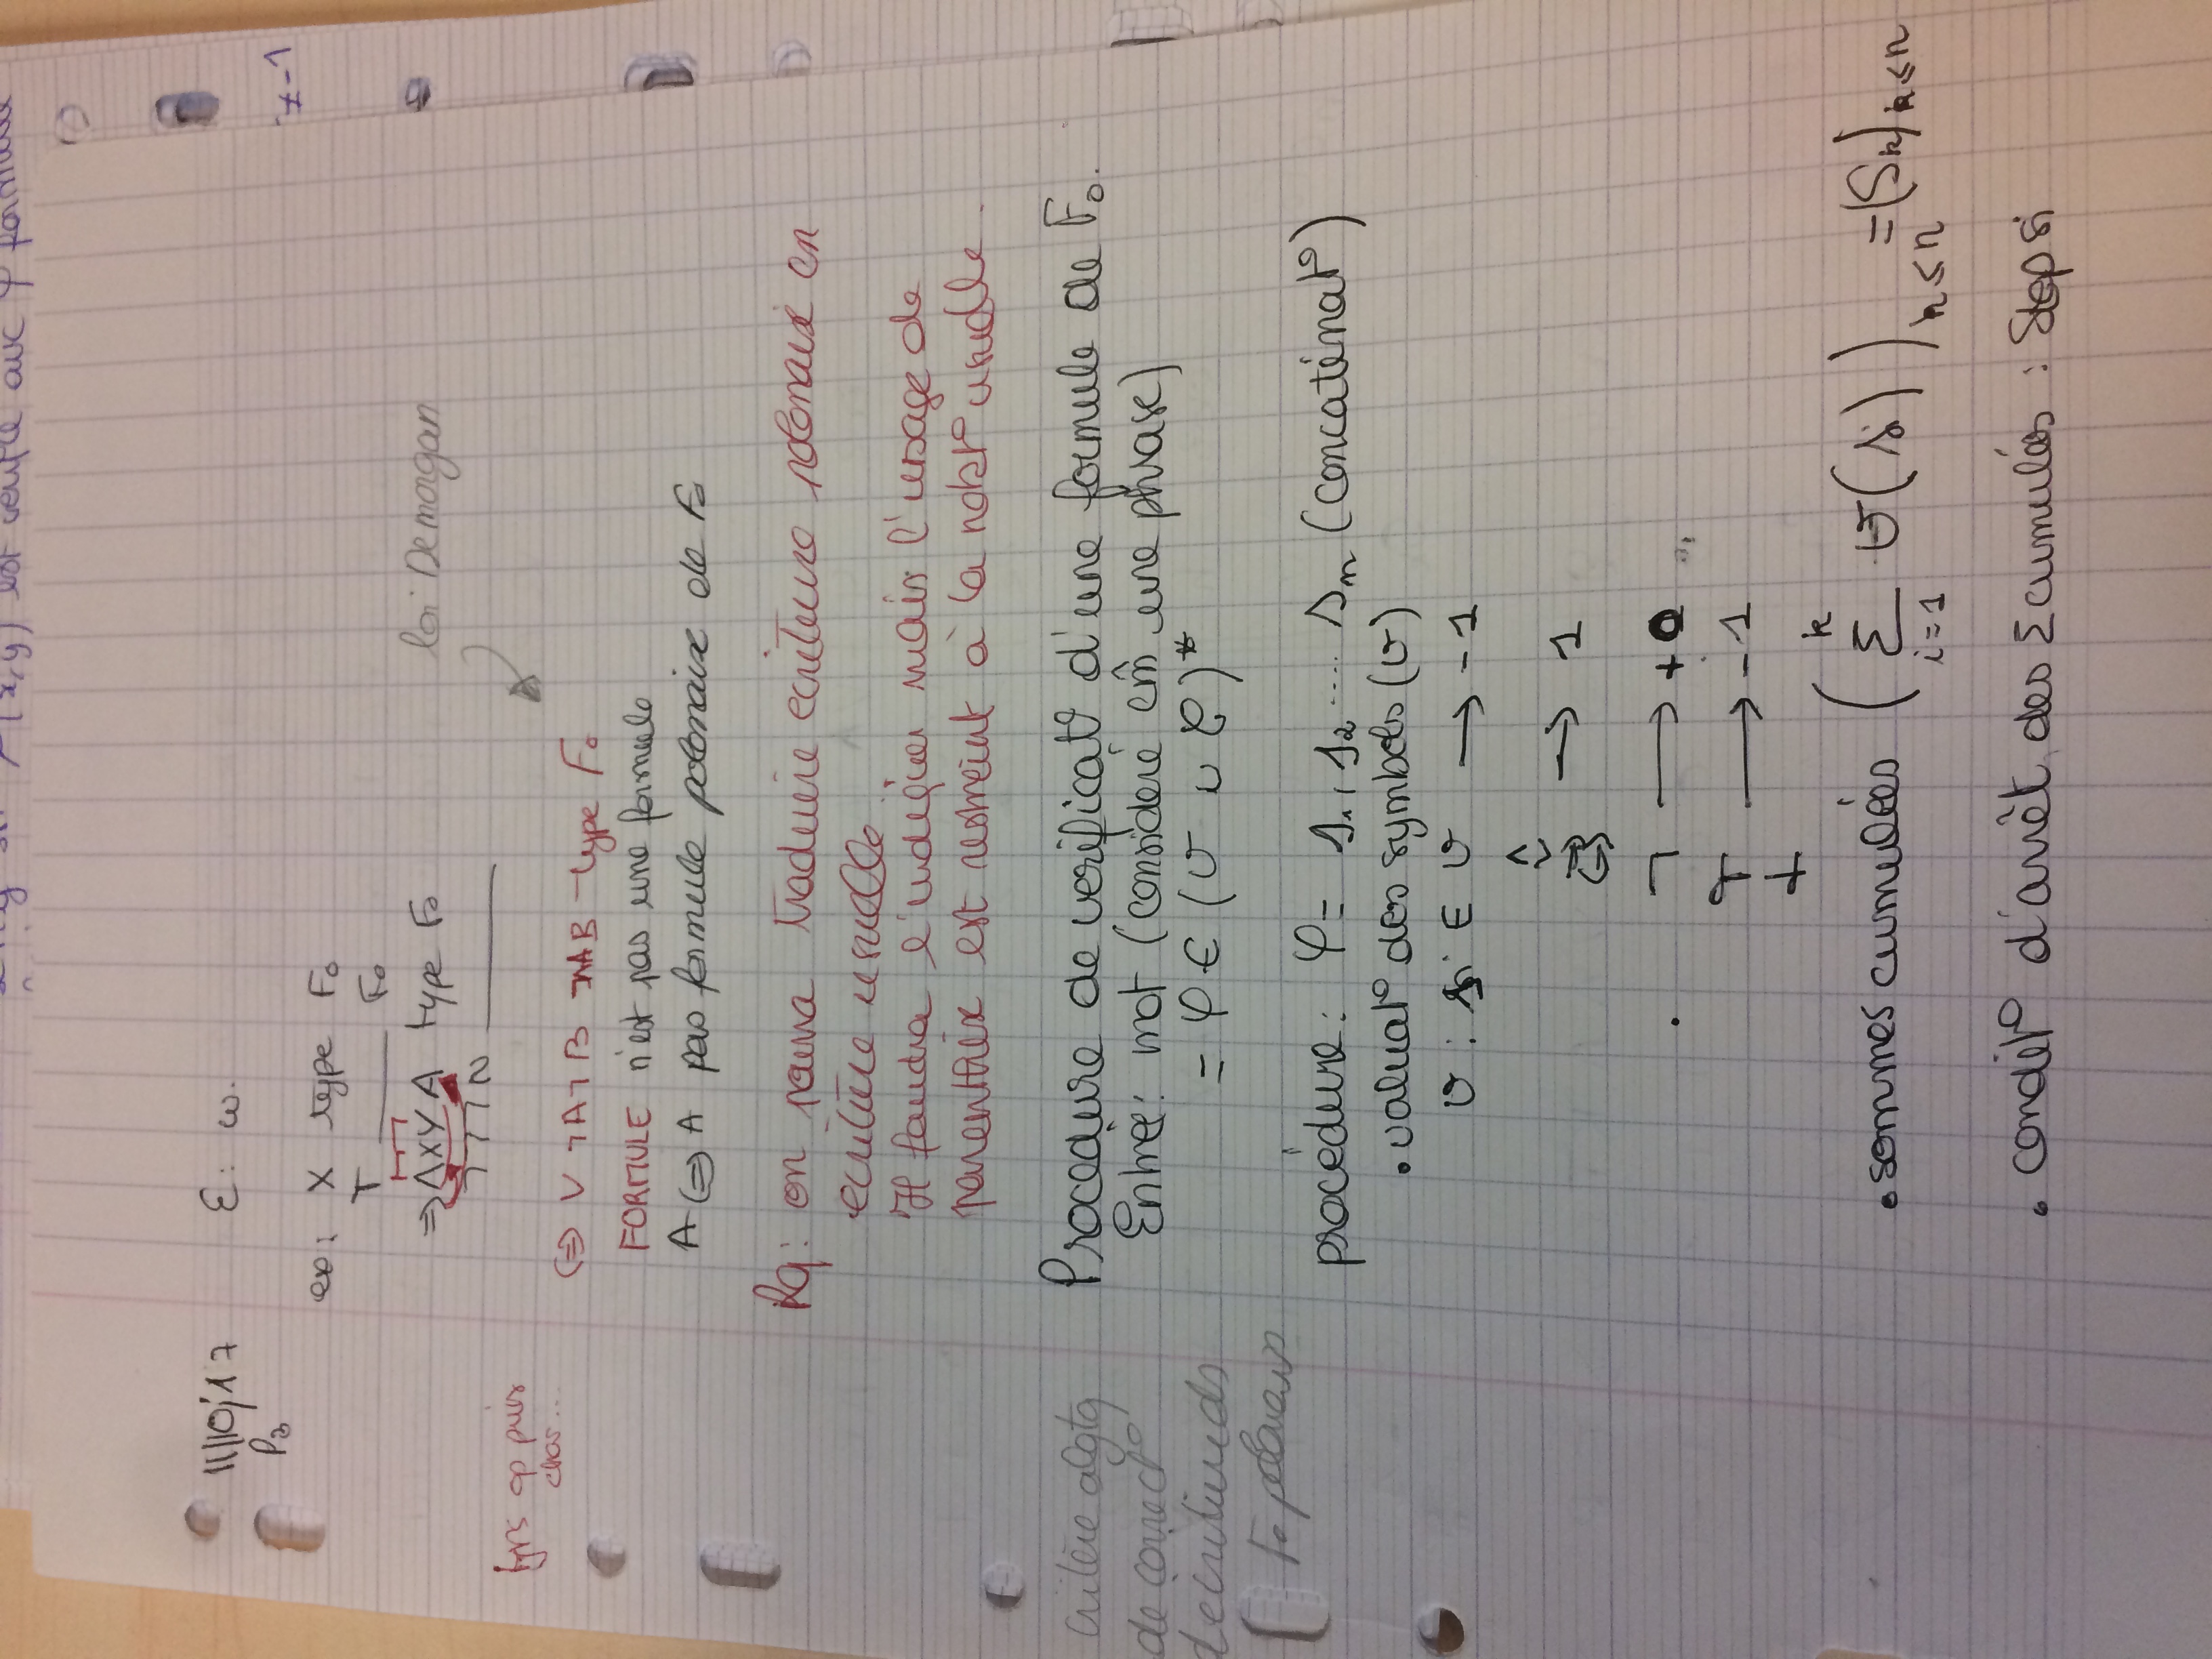 (x,y) est vérifié avec φ formule
11/10/17
P3
E: ω.
≠-1
ex: X type F₀
T ______ F₀
⇒ΛXYA type F₀
loi Demorgan
¬¬¬N ______
tjrs op puis
chos...
⇔ V ¬A¬B ¬ΛAB type F₀
FORMULE n'est pas une formule
A ⇔ A pas formule polonaise de F₀
Rq: on pourra traduire ecriture polonaise en
ecriture usuelle.
Il faudra l'indiquer mais l'usage de
parenthèse est restreint à la notat° usuelle.
critère algtq
de correct°
F₀ polonais
Procedure de verificat° d'une formule de F₀.
Entrée: mot (considéré cm̂ une phrase)
= φ ∈ (V ∪ C)*
procédure: φ = s₁, s₂ .... sₙ (concaténat°)
• valuat° des symbols (v)
v : si ∈ V → -1
∧
∨
⇒
⇔ → 1
¬ → +0
T → -1
⊥
• sommes cumulées (Σ_{i=1}^{k} v(si))_{k≤n} = (Sk)_{k≤n}
• condit° d'arrêt des Σ cumulés : Stop si